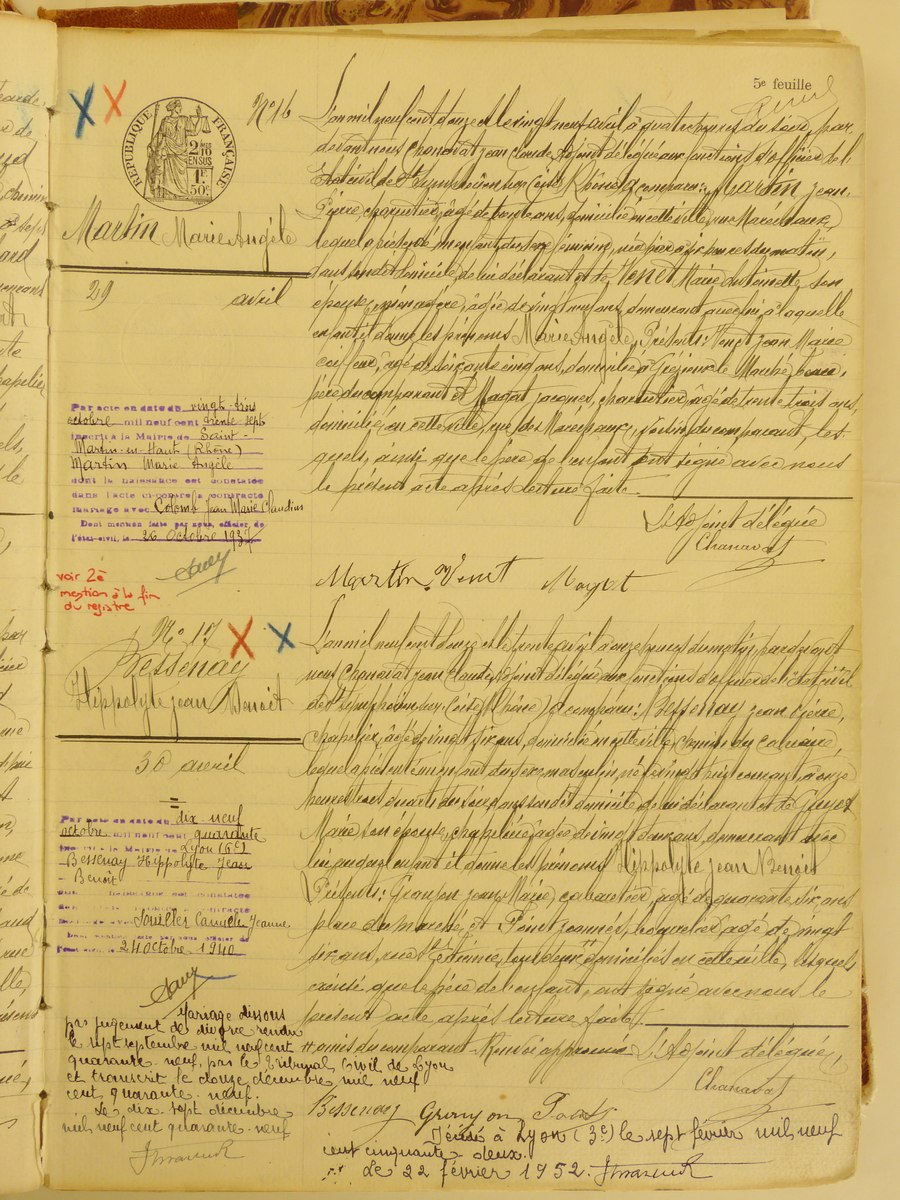 5e feuille
RÉPUBLIQUE FRANÇAISE
2/10 EN SUS
1F 50c
N° 16
Martin Marie Angèle
29 avril
L'an mil neuf cent douze et le vingt neuf avril à quatre heures du soir, par
devant nous Chanavat jean claude Adjoint délégué aux fonctions d'officier de l'
Etat civil de St Symphorien sur Coise (Rhône) a comparu: Martin jean
Pierre, charpentier, âgé de trente ans, domicilié en cette ville, rue Mareschaux,
lequel a présenté un enfant du sexe féminin, née heures du matin,
dans son dit domicile de lui déclarant et de Venet Marie Antoinette, son
épouse, ménagère, âgée de vingt ans, demeurant avec lui, à laquelle
enfant il donne les prénoms Marie Angèle, Présents: Venet jean Marie
âgé de soixante cinq ans, domicilié à
père du comparant et Magat jacques, charpentier, âgé de trente trois ans,
domicilié en cette ville, rue des Maréchaux, voisin du comparant, les-
quels, ainsi que le père de l'enfant ont signé avec nous
le présent acte après lecture faite.
L'Adjoint délégué
Chanavat
Martin Venet Magat
Par acte en date du vingt-trois
octobre mil neuf cent trente sept
inscrit à la Mairie de Saint-
Martin-en-Haut (Rhône)
Martin Marie Angèle
dont la naissance est constatée
dans l'acte ci-contre a contracté
mariage avec Colomb Jean Marie Claudius
Dont mention faite par nous, officier de
l'état-civil, le 26 Octobre 1937
voir 2e
mention à la fin
du registre
N° 17
Bessenay
Hippolyte jean Benoit
30 avril
L'an mil neuf cent douze et le trente avril à onze heures du matin, par devant
nous Chanavat jean Claude, Adjoint délégué aux fonctions d'officier de l'Etat civil
de St Symphorien sur Coise (Rhône) a comparu: Bessenay jean Pierre,
chapelier, âgé de vingt six ans, domicilié en cette ville, chemin du Calvaire,
lequel a présenté un enfant du sexe masculin, né courant, à onze
heures du soir, dans son dit domicile de lui déclarant et de
Marie son épouse, chapelière, âgée de vingt deux ans, demeurant avec
lui, auquel enfant il donne les prénoms Hippolyte jean Benoit
Présents: Granjon jean Marie, cabaretier, âgé de quarante six ans,
place du marché, et Poncet joannès, âgé de vingt
six ans, rue St Etienne, tous deux domiciliés en cette ville, lesquels
excusé que le père de l'enfant, ont signé avec nous le
présent acte après lecture faite.
amis du comparant Renvoi approuvé L'Adjoint délégué,
Chanavat
Bessenay Granjon
Par acte en date du dix-neuf
octobre mil neuf cent quarante
inscrit à la Mairie de Lyon (6e)
Bessenay Hippolyte Jean
Benoît
dont la naissance est constatée
dans l'acte ci-contre a contracté
mariage avec Souiller Camille Jeanne
Dont mention faite par nous officier de
l'état-civil, le 24 Octobre 1940
Mariage dissous
par jugement de divorce rendu
le sept septembre mil neuf cent
quarante neuf, par le Tribunal civil de Lyon
et transcrit le douze décembre mil neuf
cent quarante-neuf.
Le dix sept décembre
mil neuf cent quarante-neuf
Décédé à Lyon (3e) le sept février mil neuf
cent cinquante deux.
Le 22 février 1952.